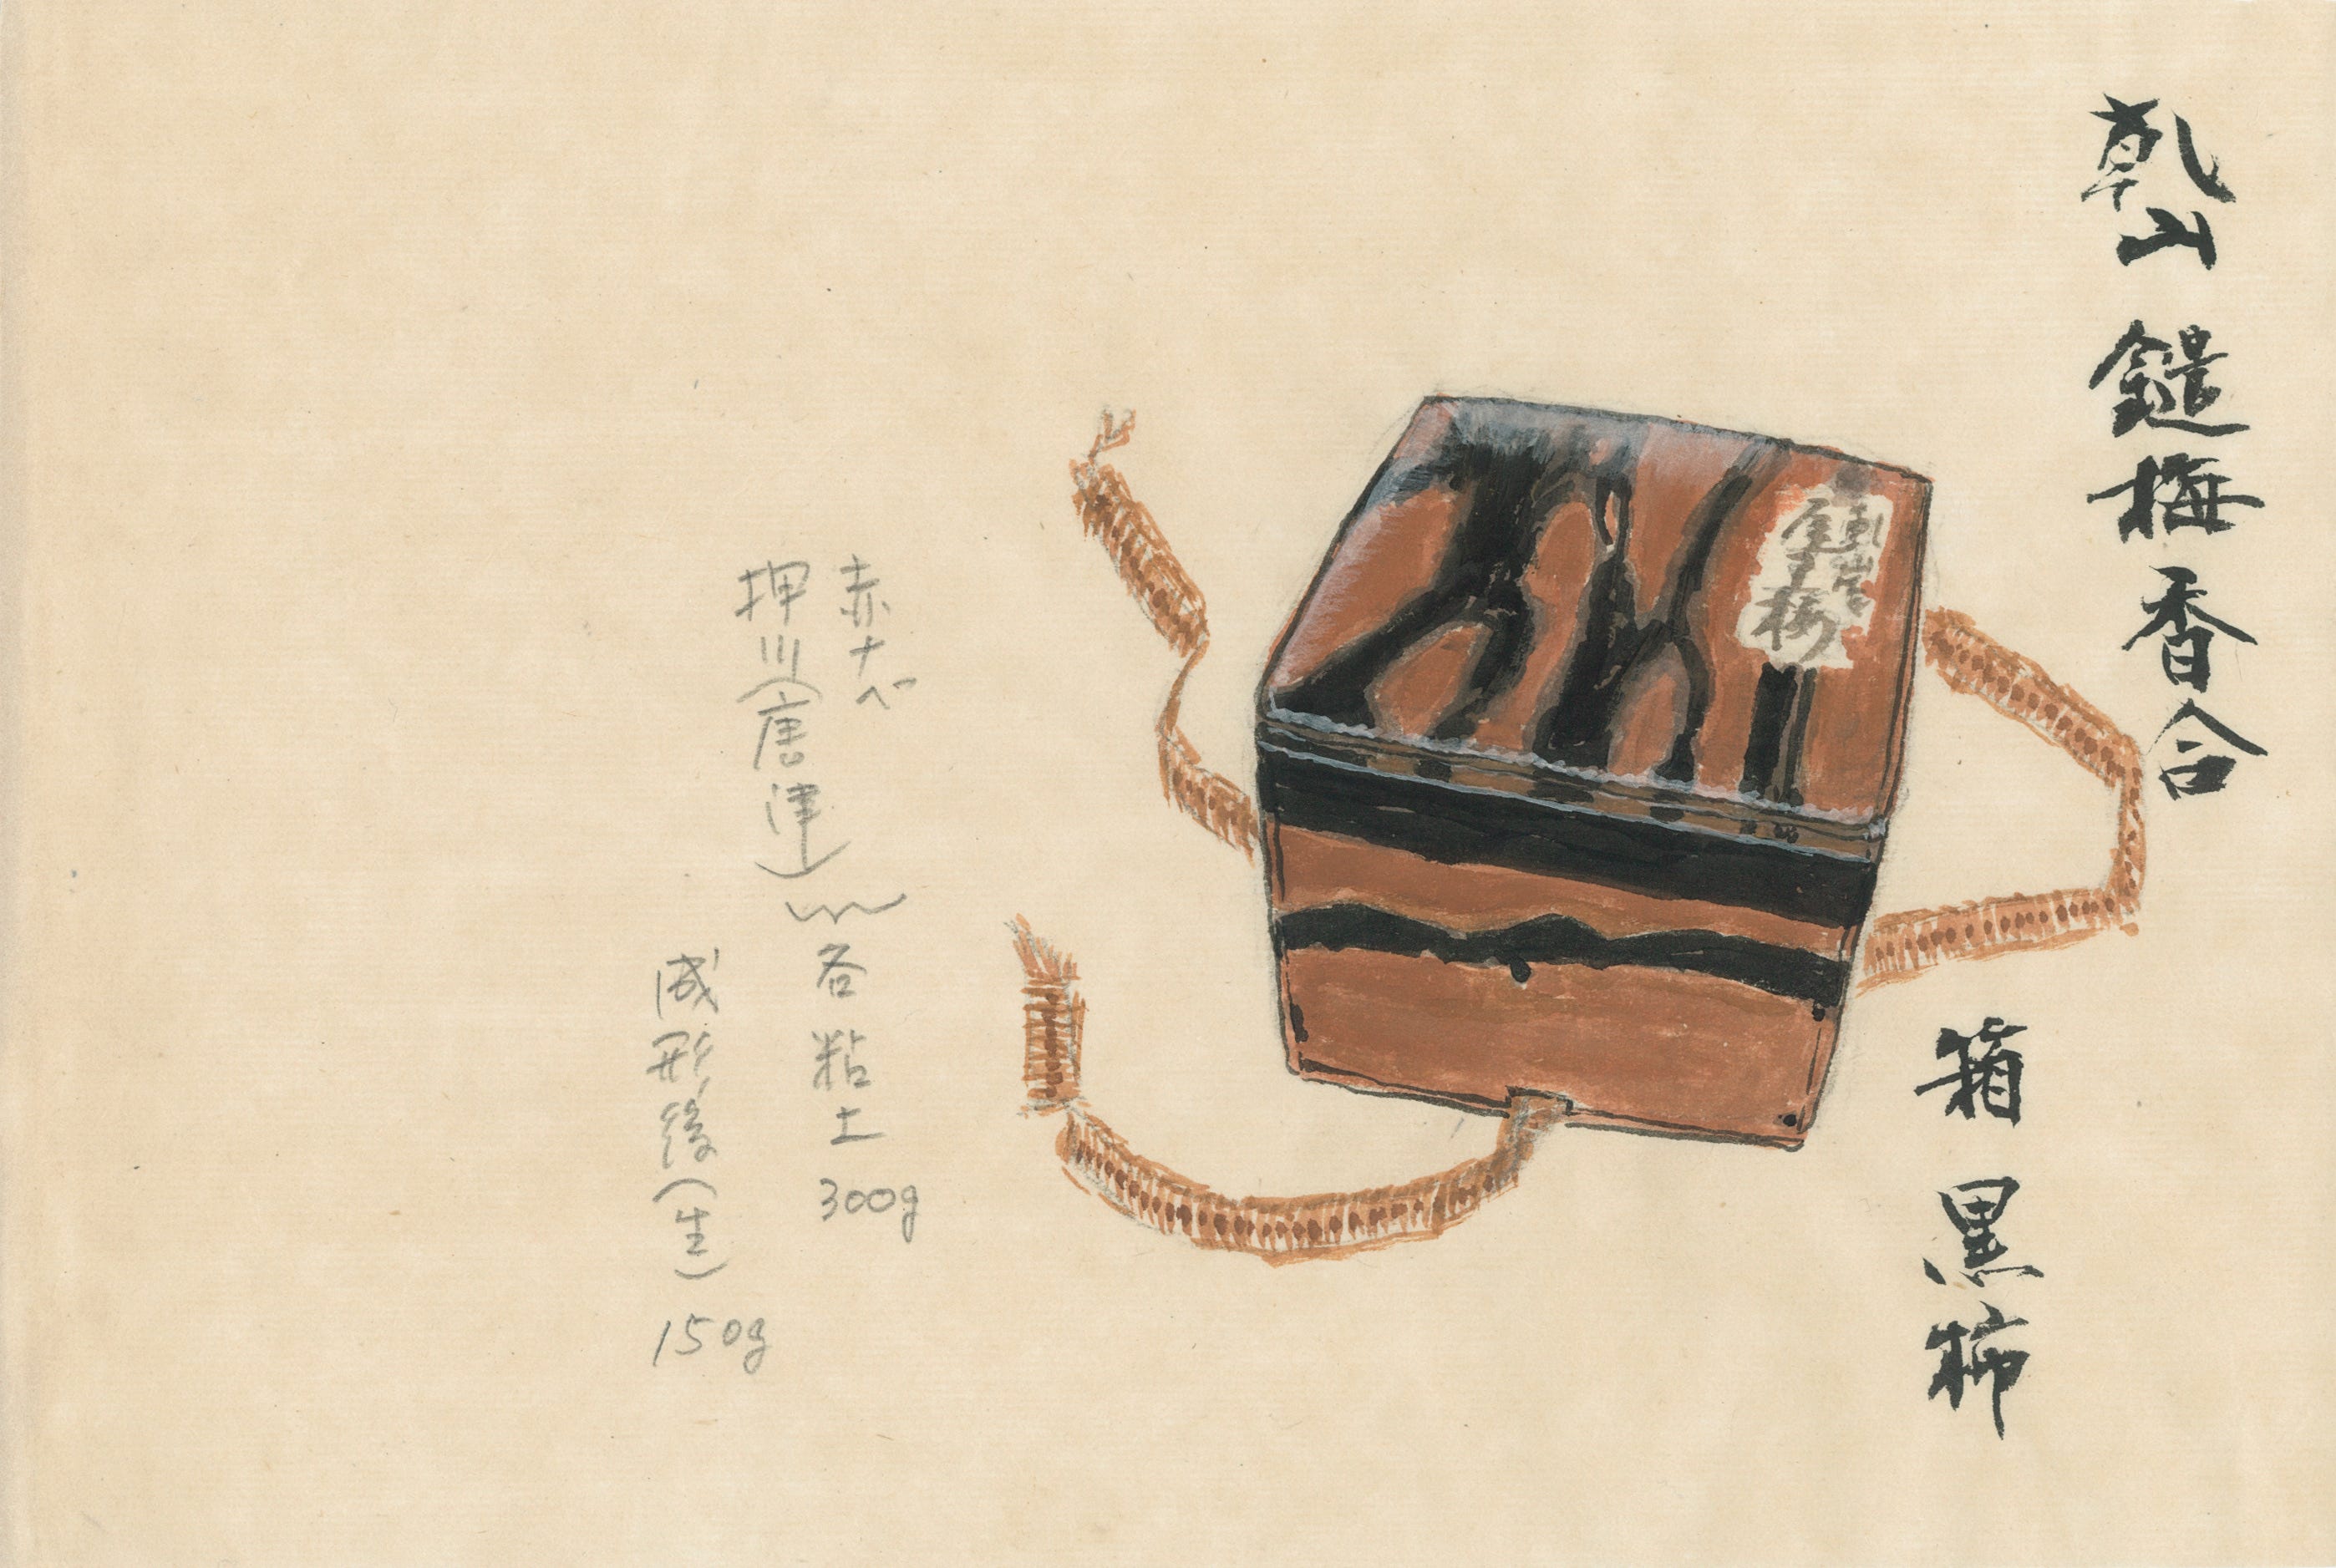 乾山 鑓梅香合
箱 黒柿
赤ナベ
押川(唐津)
各粘土300g
成形後(生)150g